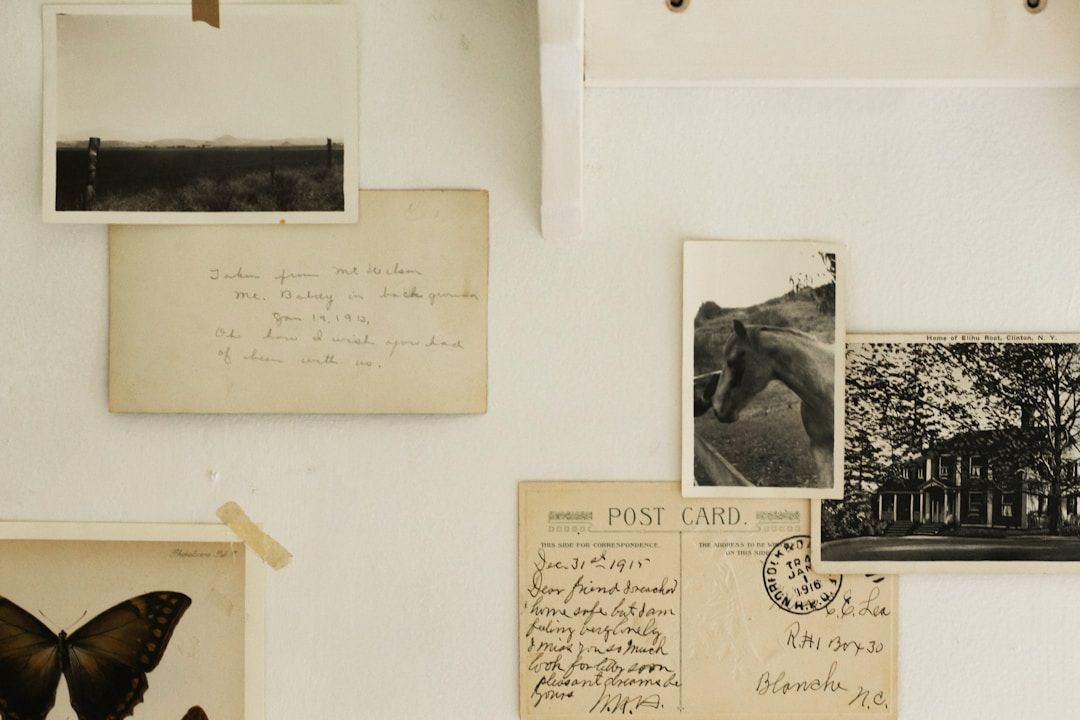 Taken from Mt Wilson
Mt. Baldy in back ground
Jan 19, 1913,
Oh how I wish you had
of been with us.
Home of Elihu Root, Clinton, N. Y.
POST CARD.
THIS SIDE FOR CORRESPONDENCE.
THE ADDRESS TO BE
ON THIS SIDE
Dec. 31st 1915
Dear friend I reached
home safe but I am
feeling very lonely
I miss you so much
look for letter soon
pleasant dreams be
yours
NORFOLK
TRA
JAN
1
1916
C. E. Lea
R#1 Box 30
Blanche
N.C.